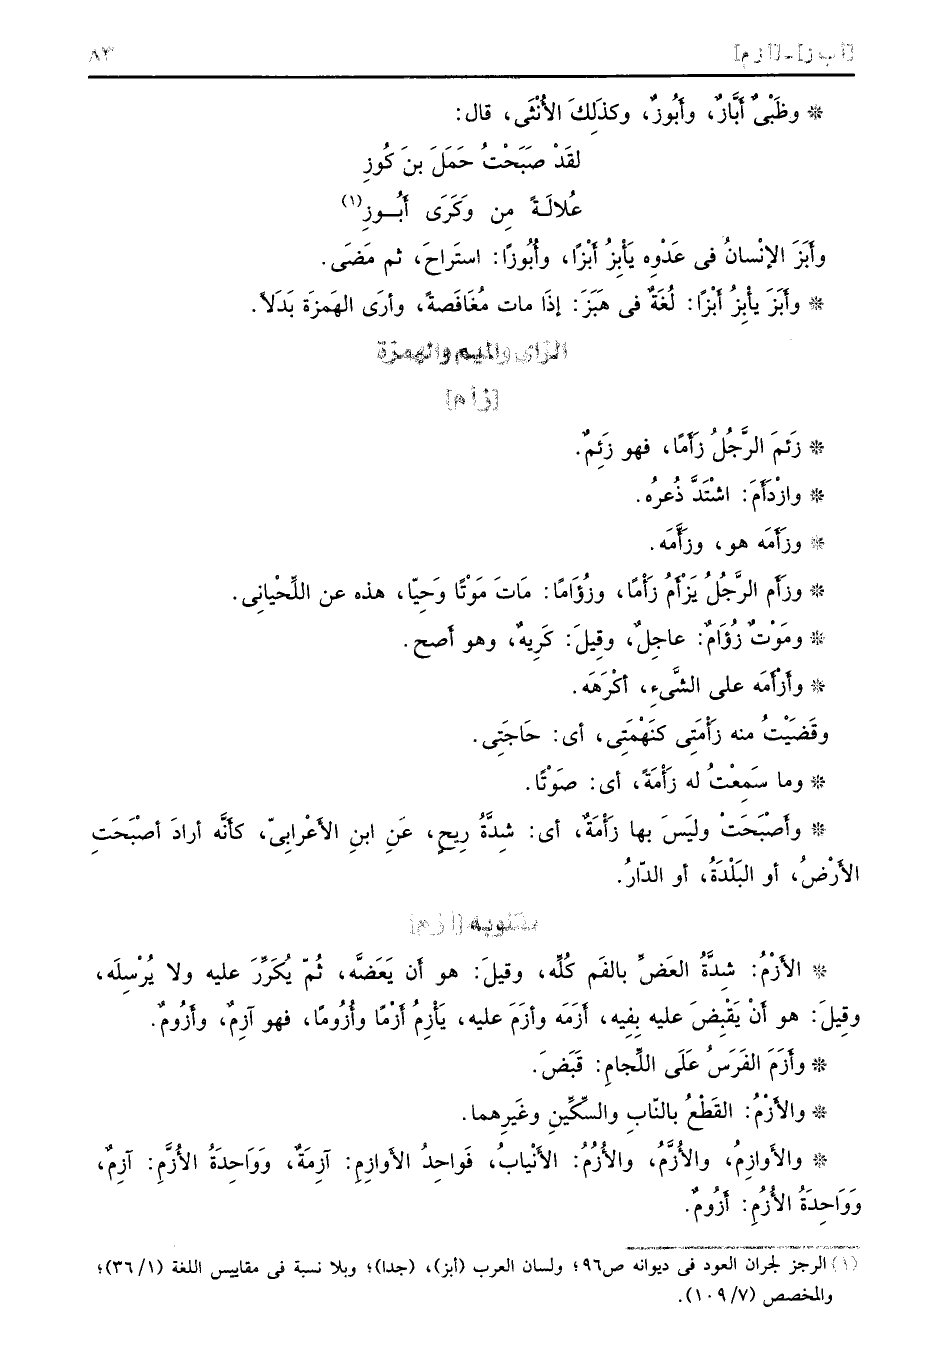 [أ ب ز] - [أ ز م] ٨٣
* وظَبْىٌ أَبَّازٌ، وأَبُوزٌ، وكذلكَ الأُنْثَى، قال:
لقَدْ صبَحْتُ حَمَلَ بنَ كُوزِ
عُلالَةً مِن وَكَرَى أَبُوزِ(١)
وأَبَزَ الإنْسانُ فى عَدْوِه يَأْبِزُ أَبْزًا، وأُبُوزًا: استَراحَ، ثم مَضَى.
* وأَبَزَ يأْبِزُ أَبْزًا: لُغَةٌ فى هَبَزَ: إذَا مات مُغَافَصةً، وأرَى الهَمزَة بَدَلاً.
الزاى والميم والهمزة
[زأم]
* زَئمَ الرَّجُلُ زَأَمًا، فهو زَئِمٌ.
* وازْدَأَمَ: اشْتَدَّ ذُعرُه.
* وزَأَمَه هو، وزَأَّمَه.
* وزَأَم الرَّجُلُ يَزْأَمُ زَأْمًا، وزُؤَامًا: مَاتَ مَوْتًا وَحِيّا، هذه عن اللِّحْيانِى.
* ومَوْتٌ زُؤَامٌ: عاجِلٌ، وقِيلَ: كَرِيهٌ، وهو أَصح.
* وأَزْأَمَه على الشَّىءِ، أكْرَهَه.
وقَضَيْتُ منه زَأْمَتِى كنَهْمَتِى، أى: حَاجَتِى.
* وما سَمِعْتُ له زَأْمَةً، أى: صَوْتًا.
* وأَصْبَحَتْ وليَسَ بها زَأْمَةٌ، أى: شِدَّةُ رِيحٍ، عَنِ ابنِ الأَعْرابىّ، كأنَّه أرادَ أصْبَحَتِ
الأَرْضُ، أو البَلْدَةُ، أو الدّارُ.
مقلوبه [أ ز م]
* الأَزْمُ: شِدَّةُ العَضِّ بالفَم كُلِّه، وقيلَ: هو أن يَعَضَّه، ثُمّ يُكَرِّرَ عليه ولا يُرْسِلَه،
وقِيلَ: هو أنْ يَقْبِضَ عليه بِفِيه، أَزَمَه وأزَمَ عليه، يَأْزِمُ أَزْمًا وأُزُومًا، فهو آزِمٌ، وأَزُومٌ.
* وأَزَمَ الفَرَسُ عَلَى اللِّجامِ: قَبَضَ.
* والأَزْمُ: القَطْعُ بالنّابِ والسِّكِّينِ وغَيرِهما.
* والأَوازِمُ، والأُزَّمُ، والأُزُمُ: الأَنْيابُ، فَواحِدُ الأَوازِمِ: آزِمَةٌ، وَوَاحِدَةُ الأُزَّمِ: آزِمٌ،
وَوَاحِدَةُ الأُزُمِ: أَزُومٌ.
(١) الرجز لجران العود فى ديوانه ص٩٦؛ ولسان العرب (أبز)، (جدا)؛ وبلا نسبة فى مقاييس اللغة (٣٦/١)؛
والمخصص (١٠٩/٧).